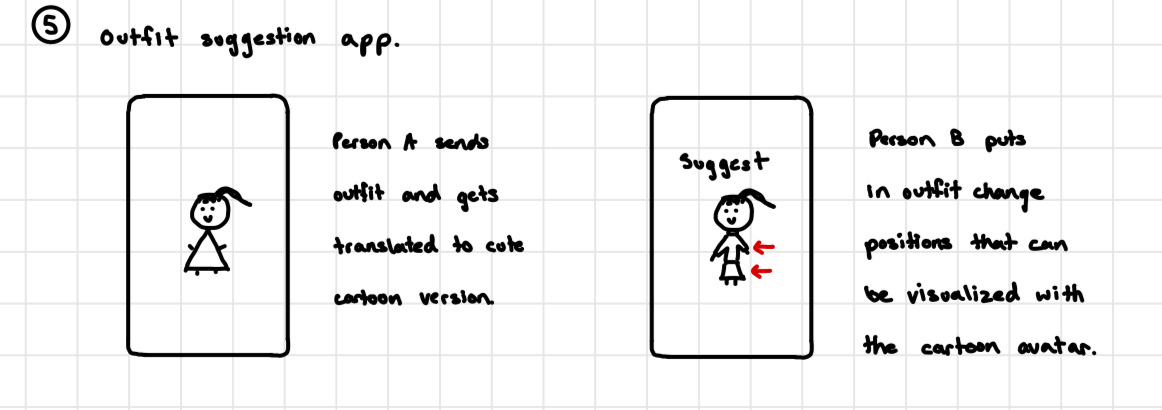 ⑤ outfit suggestion app.
Person A sends
outfit and gets
translated to cute
cartoon version.
Suggest
Person B puts
in outfit change
positions that can
be visualized with
the cartoon avatar.